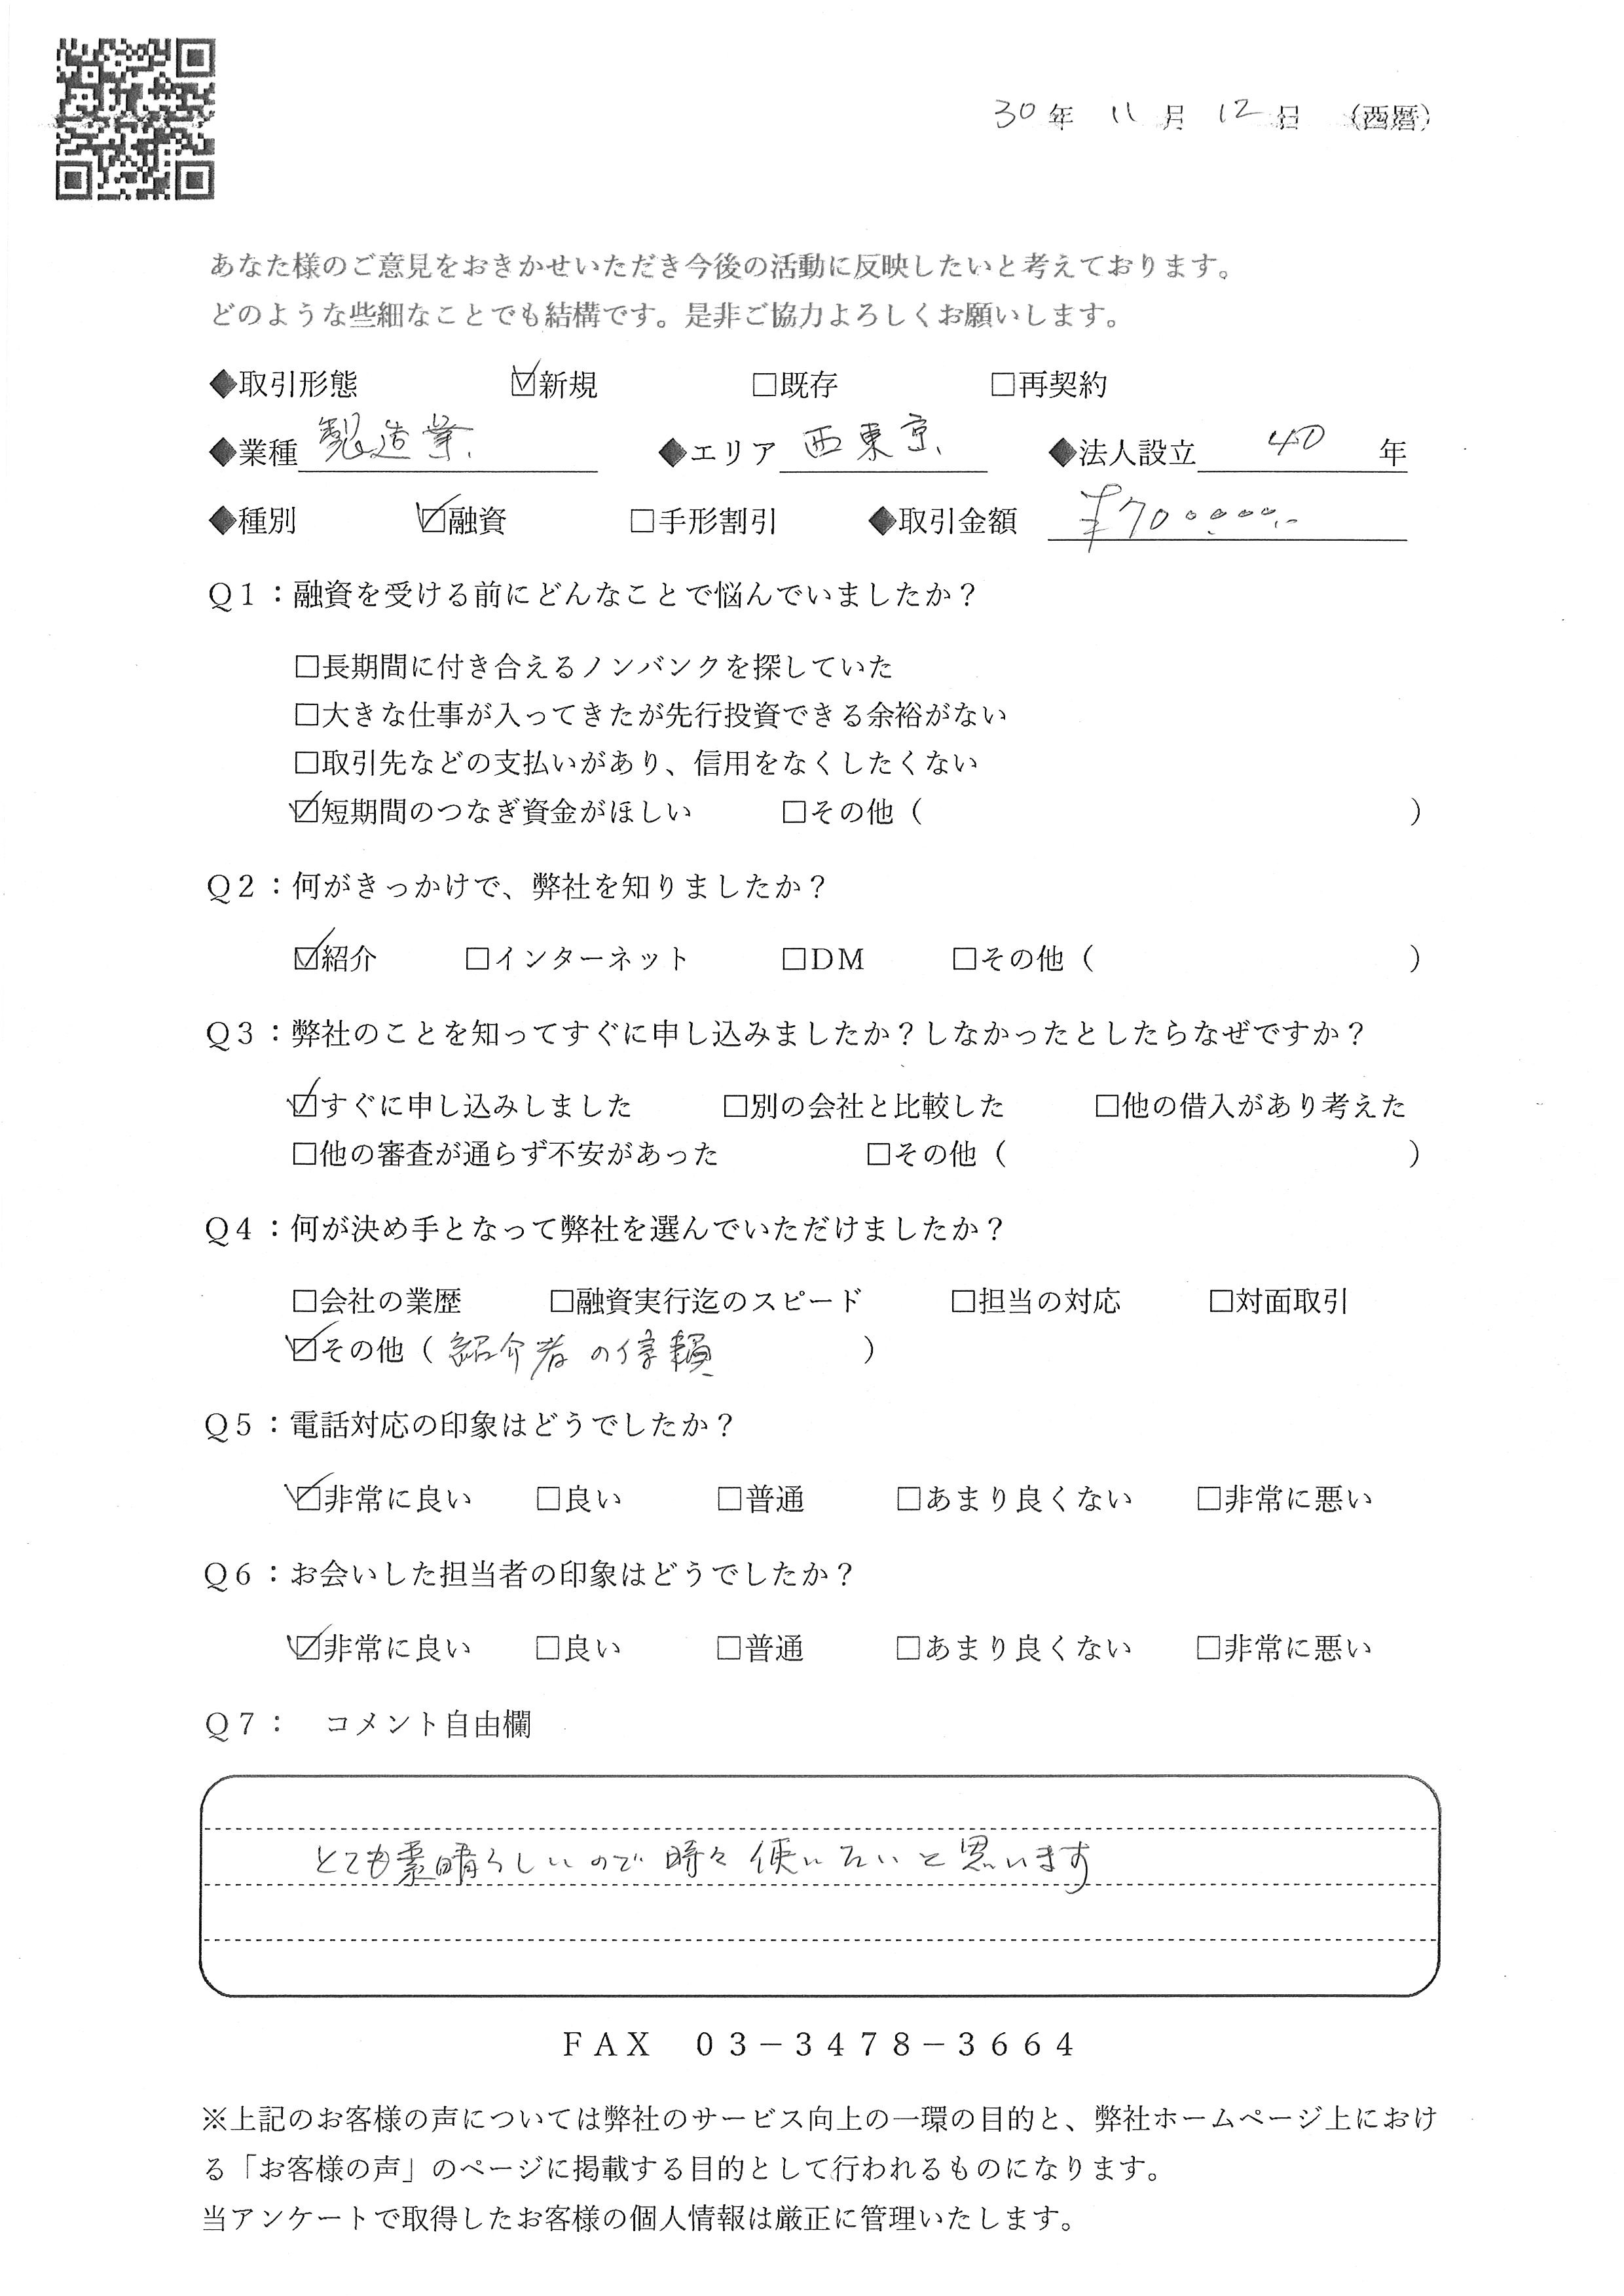 30年 11月 12日 （西暦）
あなた様のご意見をおきかせいただき今後の活動に反映したいと考えております。
どのような些細なことでも結構です。是非ご協力よろしくお願いします。
◆取引形態 ☑新規 □既存 □再契約
◆業種 製造業. ◆エリア 西東京. ◆法人設立 40 年
◆種別 ☑融資 □手形割引 ◆取引金額 ¥7000.000.-
Q1：融資を受ける前にどんなことで悩んでいましたか？
□長期間に付き合えるノンバンクを探していた
□大きな仕事が入ってきたが先行投資できる余裕がない
□取引先などの支払いがあり、信用をなくしたくない
☑短期間のつなぎ資金がほしい □その他（ ）
Q2：何がきっかけで、弊社を知りましたか？
☑紹介 □インターネット □DM □その他（ ）
Q3：弊社のことを知ってすぐに申し込みましたか？しなかったとしたらなぜですか？
☑すぐに申し込みしました □別の会社と比較した □他の借入があり考えた
□他の審査が通らず不安があった □その他（ ）
Q4：何が決め手となって弊社を選んでいただけましたか？
□会社の業歴 □融資実行迄のスピード □担当の対応 □対面取引
☑その他（ 紹介者の信頼 ）
Q5：電話対応の印象はどうでしたか？
☑非常に良い □良い □普通 □あまり良くない □非常に悪い
Q6：お会いした担当者の印象はどうでしたか？
☑非常に良い □良い □普通 □あまり良くない □非常に悪い
Q7： コメント自由欄
とても素晴らしいので時々使いたいと思います
FAX 03－3478－3664
※上記のお客様の声については弊社のサービス向上の一環の目的と、弊社ホームページ上におけ
る「お客様の声」のページに掲載する目的として行われるものになります。
当アンケートで取得したお客様の個人情報は厳正に管理いたします。